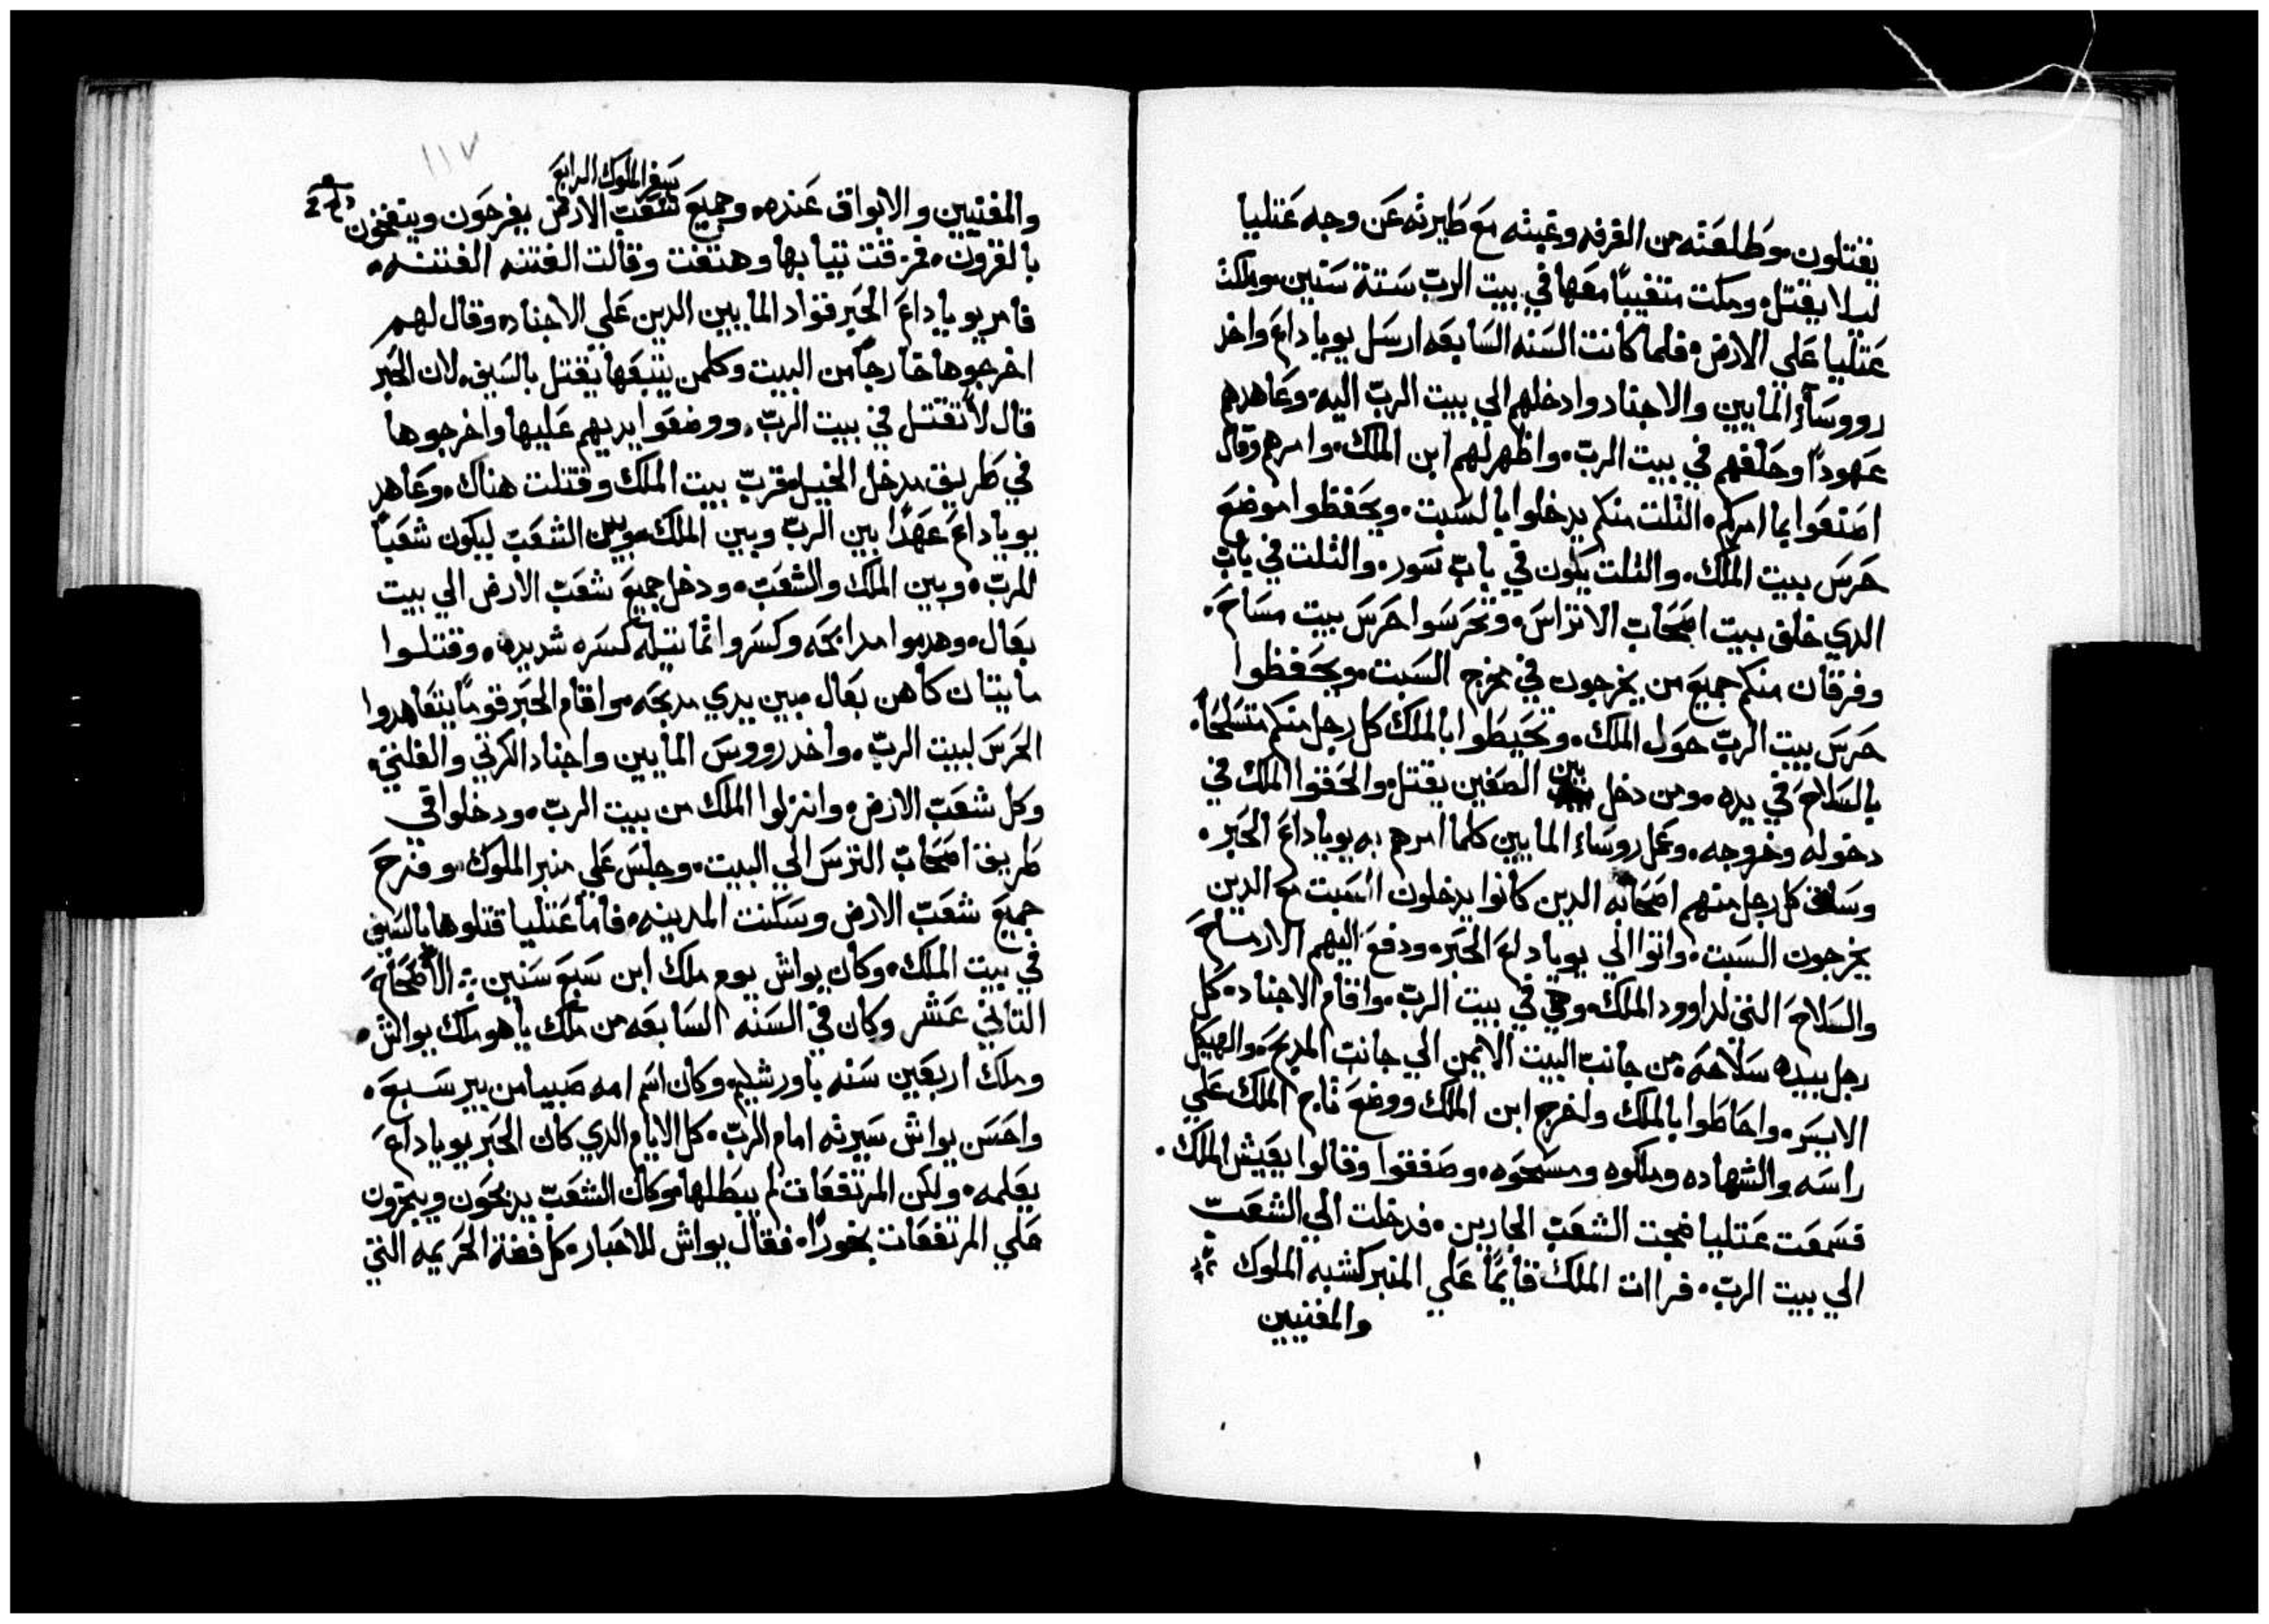 يقتلون وطلعته من الغرفه وغبته مع طيرته عن وجه عتليا
ليلا يقتل ومكت متغيباً معها في بيت الرب ستة سنين وملكت
عتليا علي الارض فلما كانت السنه السابعه ارسل يوياداع واخد
رووساء المايين والاجناد وادخلهم الي بيت الرب اليه وعاهدهم
عهوداً وحلفهم في بيت الرب واظهر لهم ابن الملك وامرهم وقال
اصنعوا بما امركم التلت منكم يدخلوا بالسبت ويحفظوا موضع
حرس بيت الملك والتلت يكون في باب سور والتلت في باب
الدي خلف بيت اصحاب الاتراس وتحرسوا حرس بيت مساح
وفرقان منكم جميع من يخرجون في مخرج السبت ويحفظوا
حرس بيت الرب حول الملك وتحيطوا بالملك كل رجل منكم متسلحاً
بالسلاح في يده ومن دخل بين الصفين يقتل والحقوا الملك في
دخوله وخروجه وعمل روساء المايين كلما امرهم به يوياداع الحبر
وساق كل رجل منهم اصحابه الدين كانوا يدخلون السبت مع الدين
يخرجون السبت واتوا الي يوياداع الحبر ودفع اليهم الارماح
والسلاح التي لداوود الملك وهي في بيت الرب واقام الاجناد كل
رجل بيده سلاحه من جانب البيت الايمن الي جانب المدبح والهيكل
الايسر واحاطوا بالملك واخرج ابن الملك ووضع تاج الملك علي
راسه والشهاده وملكوه ومسحوه وصفقوا وقالوا يعيش الملك
فسمعت عتليا ضجت الشعب الجاريين فدخلت الي الشعب
الي بيت الرب فراات الملك قايماً علي المنبر كشبه الملوك
والمغنيين
١١٧
سفر الملوك الرابع
والمغنيين والابواق عنده وجميع شعب الارض يفرحون وينفخون
بالقرون فمزقت تيابها وهتفت وقالت الفتنه الفتنه
فامر يوياداع الحبر قواد المايين الدين علي الاجناد وقال لهم
اخرجوها خارجاً من البيت وكلمن يتبعها يقتل بالسيف لان الحبر
قال لا تقتل في بيت الرب ووضعوا ايديهم عليها واخرجوها
في طريق مدخل الخيل قرب بيت الملك وقتلت هناك وعاهد
يوياداع عهداً بين الرب وبين الملك وبين الشعب ليكون شعباً
للرب وبين الملك والشعب ودخل جميع شعب الارض الي بيت
بعال وهدموا مدابحه وكسروا تماتيله كسره شديده وقتلوا
ماتيان كاهن بعال بين يدي مدبحه واقام الحبر قوماً يتعاهدوا
الحرس لبيت الرب واخد رووس المايين واجناد الكرتي والفلتي
وكل شعب الارض وانزلوا الملك من بيت الرب ودخلوا في
طريق اصحاب الترس الي البيت وجلس علي منبر الملوك وفرح
جميع شعب الارض وسكنت المدينه فاما عتليا قتلوها بالسيف
في بيت الملك وكان يواش يوم ملك ابن سبع سنين الاصحاح
التاني عشر وكان في السنه السابعه من ملك ياهو ملك يواش
وملك اربعين سنه باورشليم وكان اسم امه صبيا من بير سبع
واحسن يواش سيرته امام الرب كل الايام الدي كان الحبر يوياداع
يعلمه ولكن المرتفعات لم يبطلها وكان الشعب يدبحون ويبخرون
علي المرتفعات بخوراً فقال يواش للاحبار كل فضة الحريمه التي